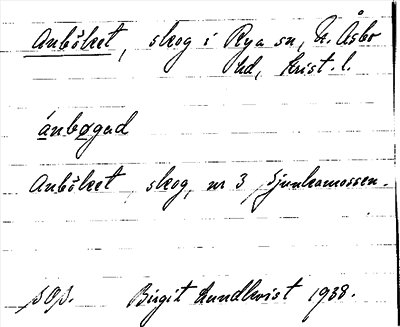 Anböket, skog i Rya sn, N. Åsbo
hd, Krist. l.
ánbøgad
Anböket, skog, nr 3 Sjunkamossen.
sOp. Birgit Lundkvist 1938.